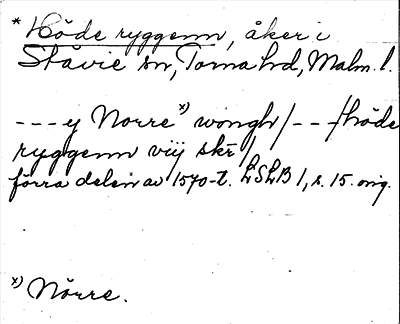 * Höde ryggenn, åker i
Ståvie sn, Torna hd, Malm. l.
---y Norre x) wongh/---/höde
ryggenn viij skr/
förra delen av 1570-t. LSLB 1, s. 15. orig.
x) Nörre.